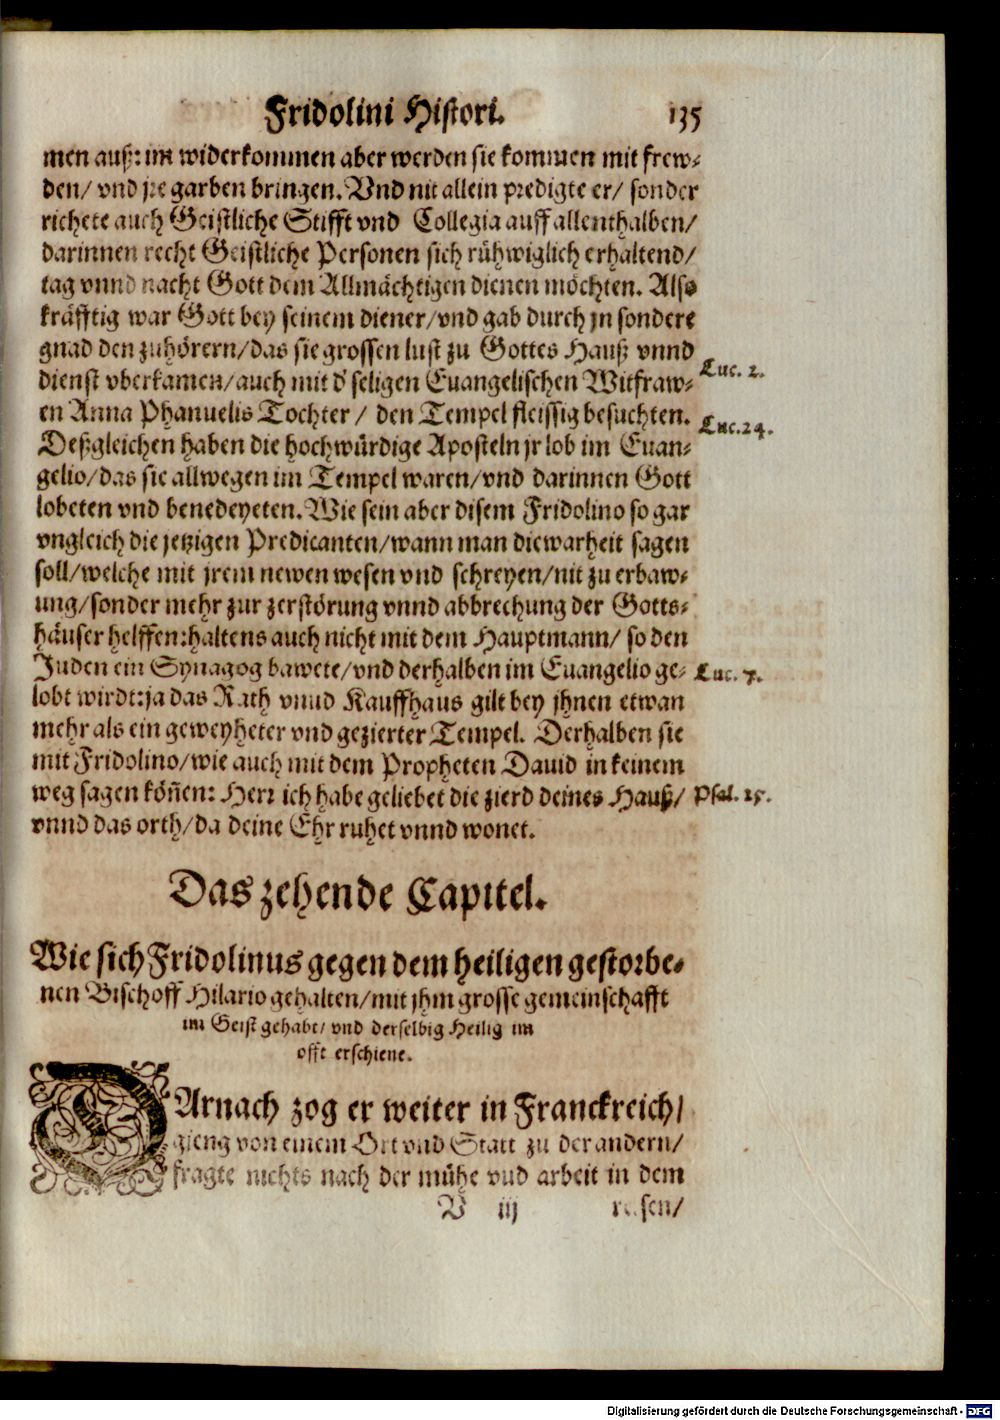 Fridolini Histori. 135
men auß: im widerkommen aber werden sie kommen mit frew-
den/ vnd jre garben bringen. Vnd nit allein predigte er/ sonder
richete auch Geistliche Stifft vnd Collegia auff allenthalben/
darinnen recht Geistliche Personen sich rühwiglich erhaltend/
tag vnnd nacht Gott dem Allmächtigen dienen möchten. Also
kräfftig war Gott bey seinem diener/vnd gab durch jn sondere
gnad den zuhörern/das sie grossen lust zu Gottes Hauß vnnd
dienst vberkamen/auch mit d' seligen Euangelischen Witfraw-
Luc. 2.
en Anna Phanuelis Tochter/ den Tempel fleissig besuchten.
Luc. 24.
Deßgleichen haben die hochwürdige Aposteln jr lob im Euan-
gelio/das sie allwegen im Tempel waren/vnd darinnen Gott
lobeten vnd benedeyeten. Wie sein aber disem Fridolino so gar
vngleich die jetzigen Predicanten/wann man die warheit sagen
soll/welche mit jrem newen wesen vnd schreyen/nit zu erbaw-
ung/sonder mehr zur zerstörung vnnd abbrechung der Gotts-
häuser helffen: haltens auch nicht mit dem Hauptmann/ so den
Juden ein Synagog bawete/vnd derhalben im Euangelio ge-
Luc. 7.
lobt wirdt: ja das Rath vnnd Kauffhaus gilt bey jhnen etwan
mehr als ein geweyheter vnd gezierter Tempel. Derhalben sie
mit Fridolino/wie auch mit dem Propheten Dauid in keinem
weg sagen köñen: Herr ich habe geliebet die zierd deines Hauß/
Psal. 25.
vnnd das orth/da deine Ehr ruhet vnnd wonet.
Das zehende Capitel.
Wie sich Fridolinus gegen dem heiligen gestorbe-
nen Bischoff Hilario gehalten/mit jhm grosse gemeinschafft
im Geist gehabt/ vnd derselbig Heilig im
offt erschiene.
DArnach zog er weiter in Franckreich/
gieng von einem Ort vnd Statt zu der andern/
fragte nichts nach der mühe vnd arbeit in dem
V iij reisen/
Digitalisierung gefördert durch die Deutsche Forschungsgemeinschaft - DFG